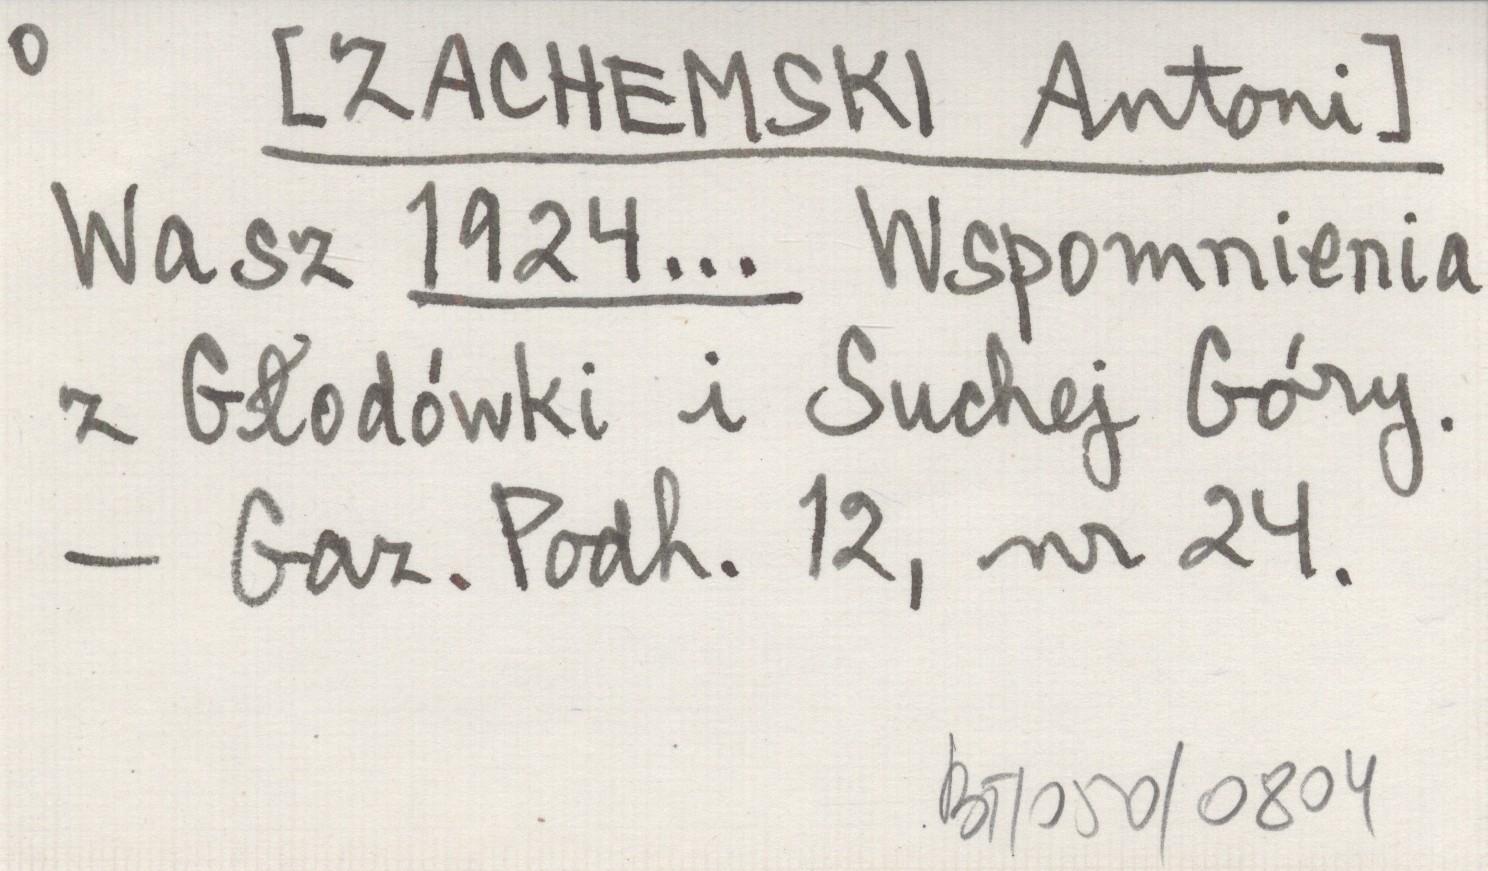 o [ZACHEMSKI Antoni]
Wasz 1924... Wspomnienia
z Głodówki i Suchej Góry.
— Gaz. Podh. 12, nr 24.
BT/050/0804